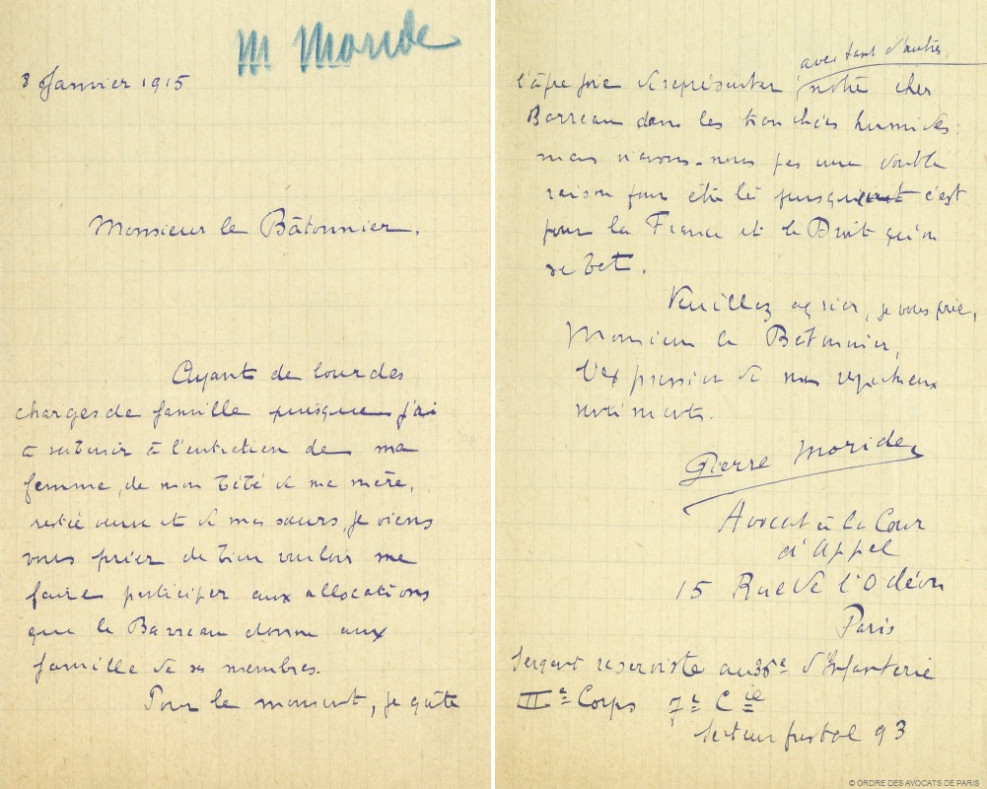 M Moride
8 Janvier 1915
Monsieur le Bâtonnier,
Ayant de lourdes
charges de famille puisque j'ai
à subvenir à l'entretien de ma
femme, de mon bébé de ma mère,
restée veuve et de mes sœurs, je viens
vous prier de bien vouloir me
faire participer aux allocations
que le Barreau donne aux
famille de ses membres.
Pour le moment, je goûte
avec tant d'autres
l'âpre joie de représenter notre cher
Barreau dans les tranchées humides :
mais n'avons-nous pas une double
raison pour être là puisque c'est
pour la France et le Droit qu'on
se bat.
Veuillez agréer, je vous prie,
Monsieur le Bâtonnier,
l'expression de mes respectueux
sentiments.
Pierre Moride
Avocat à la Cour
d'Appel
15 Rue de l'Odéon
Paris
Sergent réserviste au 36e d'Infanterie
Corps Cie
Secteur postal 93
© ORDRE DES AVOCATS DE PARIS